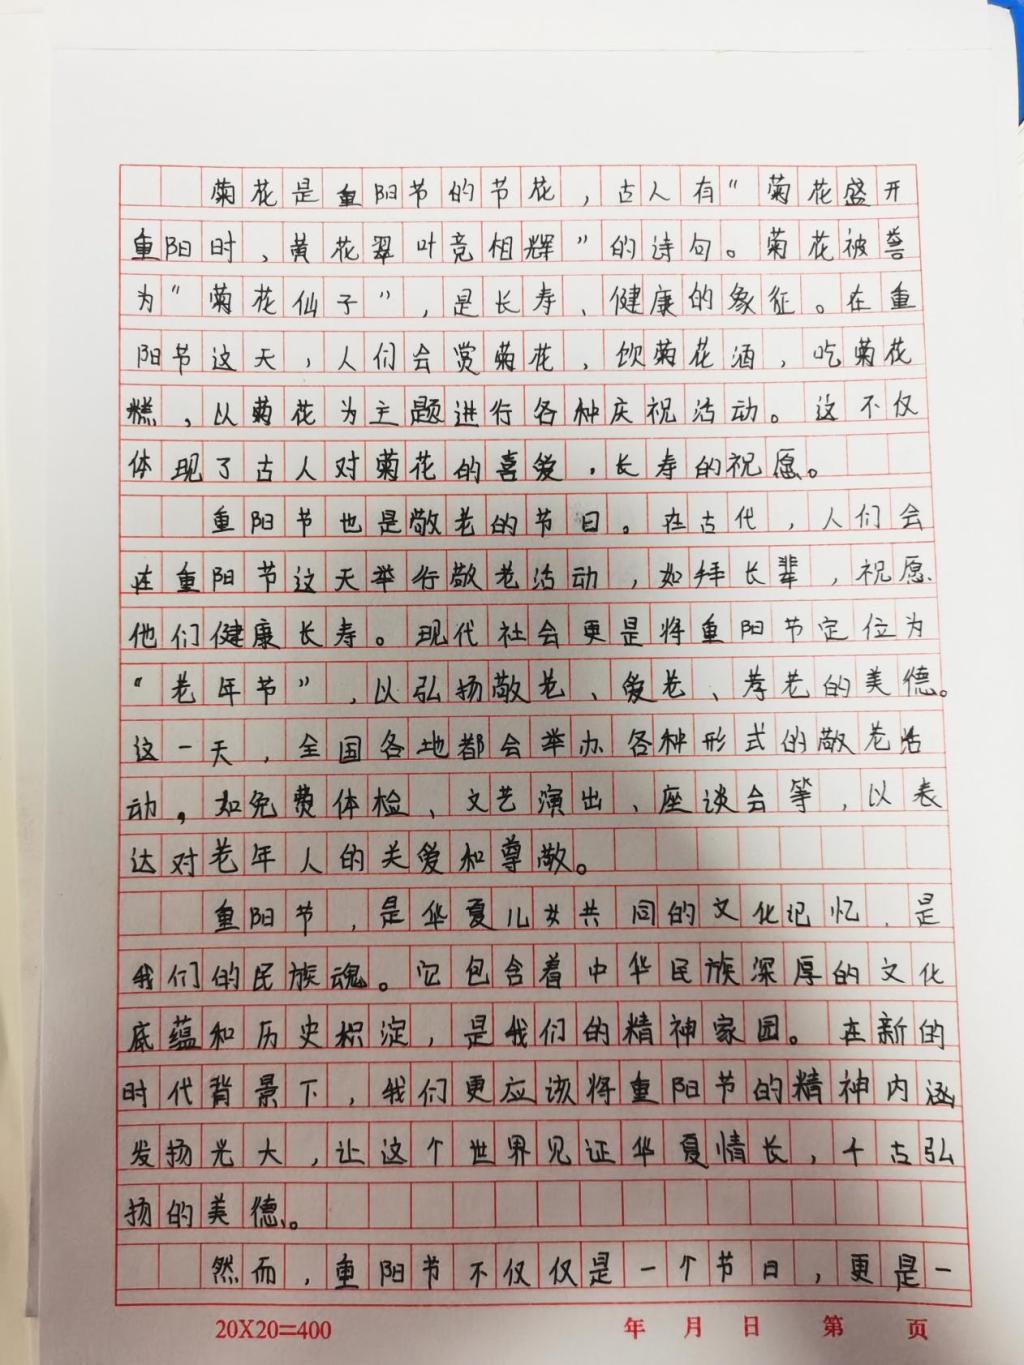 菊花是重阳节的节花，古人有“菊花盛开
重阳时，黄花翠叶竞相辉”的诗句。菊花被誉
为“菊花仙子”，是长寿、健康的象征。在重
阳节这天，人们会赏菊花，饮菊花酒，吃菊花
糕，以菊花为主题进行各种庆祝活动。这不仅
体现了古人对菊花的喜爱，长寿的祝愿。
重阳节也是敬老的节日。在古代，人们会
在重阳节这天举行敬老活动，如拜长辈，祝愿
他们健康长寿。现代社会更是将重阳节定位为
“老年节”，以弘扬敬老、爱老、孝老的美德。
这一天，全国各地都会举办各种形式的敬老活
动，如免费体检、文艺演出、座谈会等，以表
达对老年人的关爱和尊敬。
重阳节，是华夏儿女共同的文化记忆，是
我们的民族魂。它包含着中华民族深厚的文化
底蕴和历史积淀，是我们的精神家园。在新的
时代背景下，我们更应该将重阳节的精神内涵
发扬光大，让这个世界见证华夏情长，千古弘
扬的美德。
然而，重阳节不仅仅是一个节日，更是一
20X20=400 年 月 日 第 页